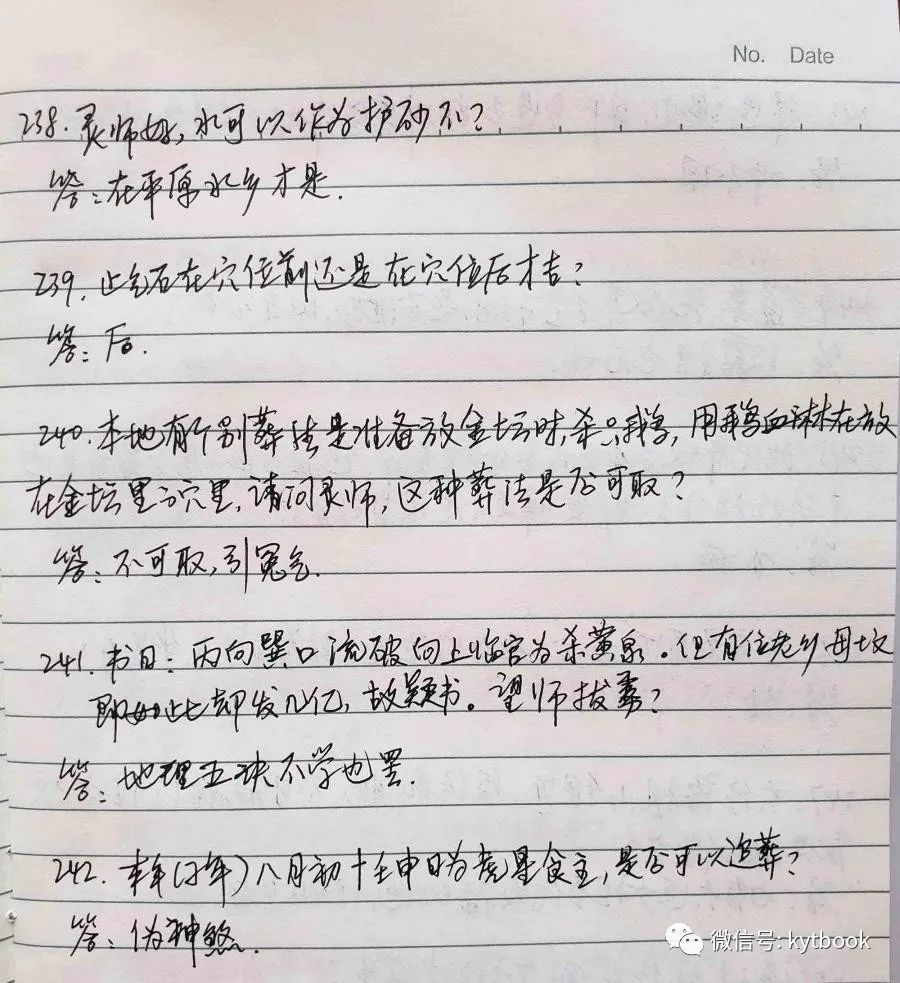 No. Date
238.灵师好,水可以作为护砂不?
答:在平原水乡才是.
239.止气石在穴位前还是在穴位后才吉?
答:后.
240.本地有个别葬法是准备放金坛时,杀只鹅,用鹅血淋在放
在金坛里的穴里,请问灵师,这种葬法是否可取?
答:不可取,引冤气.
241.书曰:丙向巽口流破向上临官为杀黄泉。但有位老乡母坟
即如此却发几亿,故疑书。望师拔雾?
答:地理五诀不学也罢.
242.本年()八月初十壬申日为虎星食主,是否可以追葬?
答:伪神煞.
微信号: kytbook